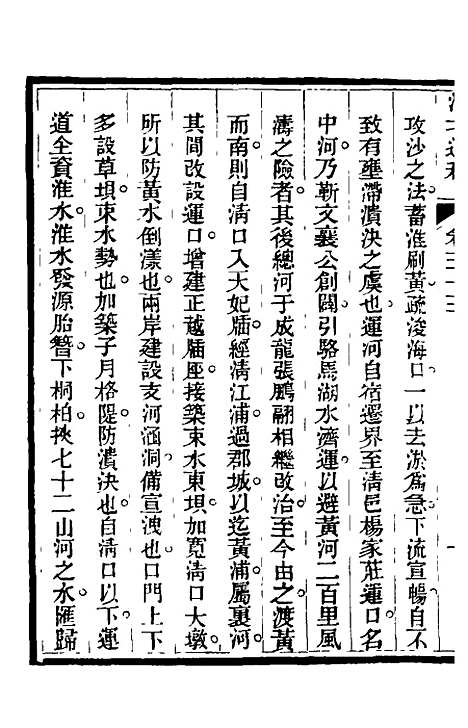 攻沙之法蓄淮刷黃疏浚海口一以去淤爲急下流宣暢自不
致有壅滯潰決之虞也運河自宿遷界至清邑楊家莊運口名
中河乃靳文襄公創闢引駱馬湖水濟運以避黃河二百里風
濤之險者其後總河于成龍張鵬翮相繼改治至今由之渡黃
而南則自淸口入天妃牐經淸江浦過郡城以迄黃浦屬裏河
其間改設運口增建正越牐座接築束水東壩加寬淸口大墩
所以防黃水倒漾也兩岸建設支河涵洞備宣洩也口門上下
多設草壩束水勢也加築子月格隄防潰決也自淸口以下運
道全資淮水淮水發源胎簪下桐柏挾七十二山河之水匯歸